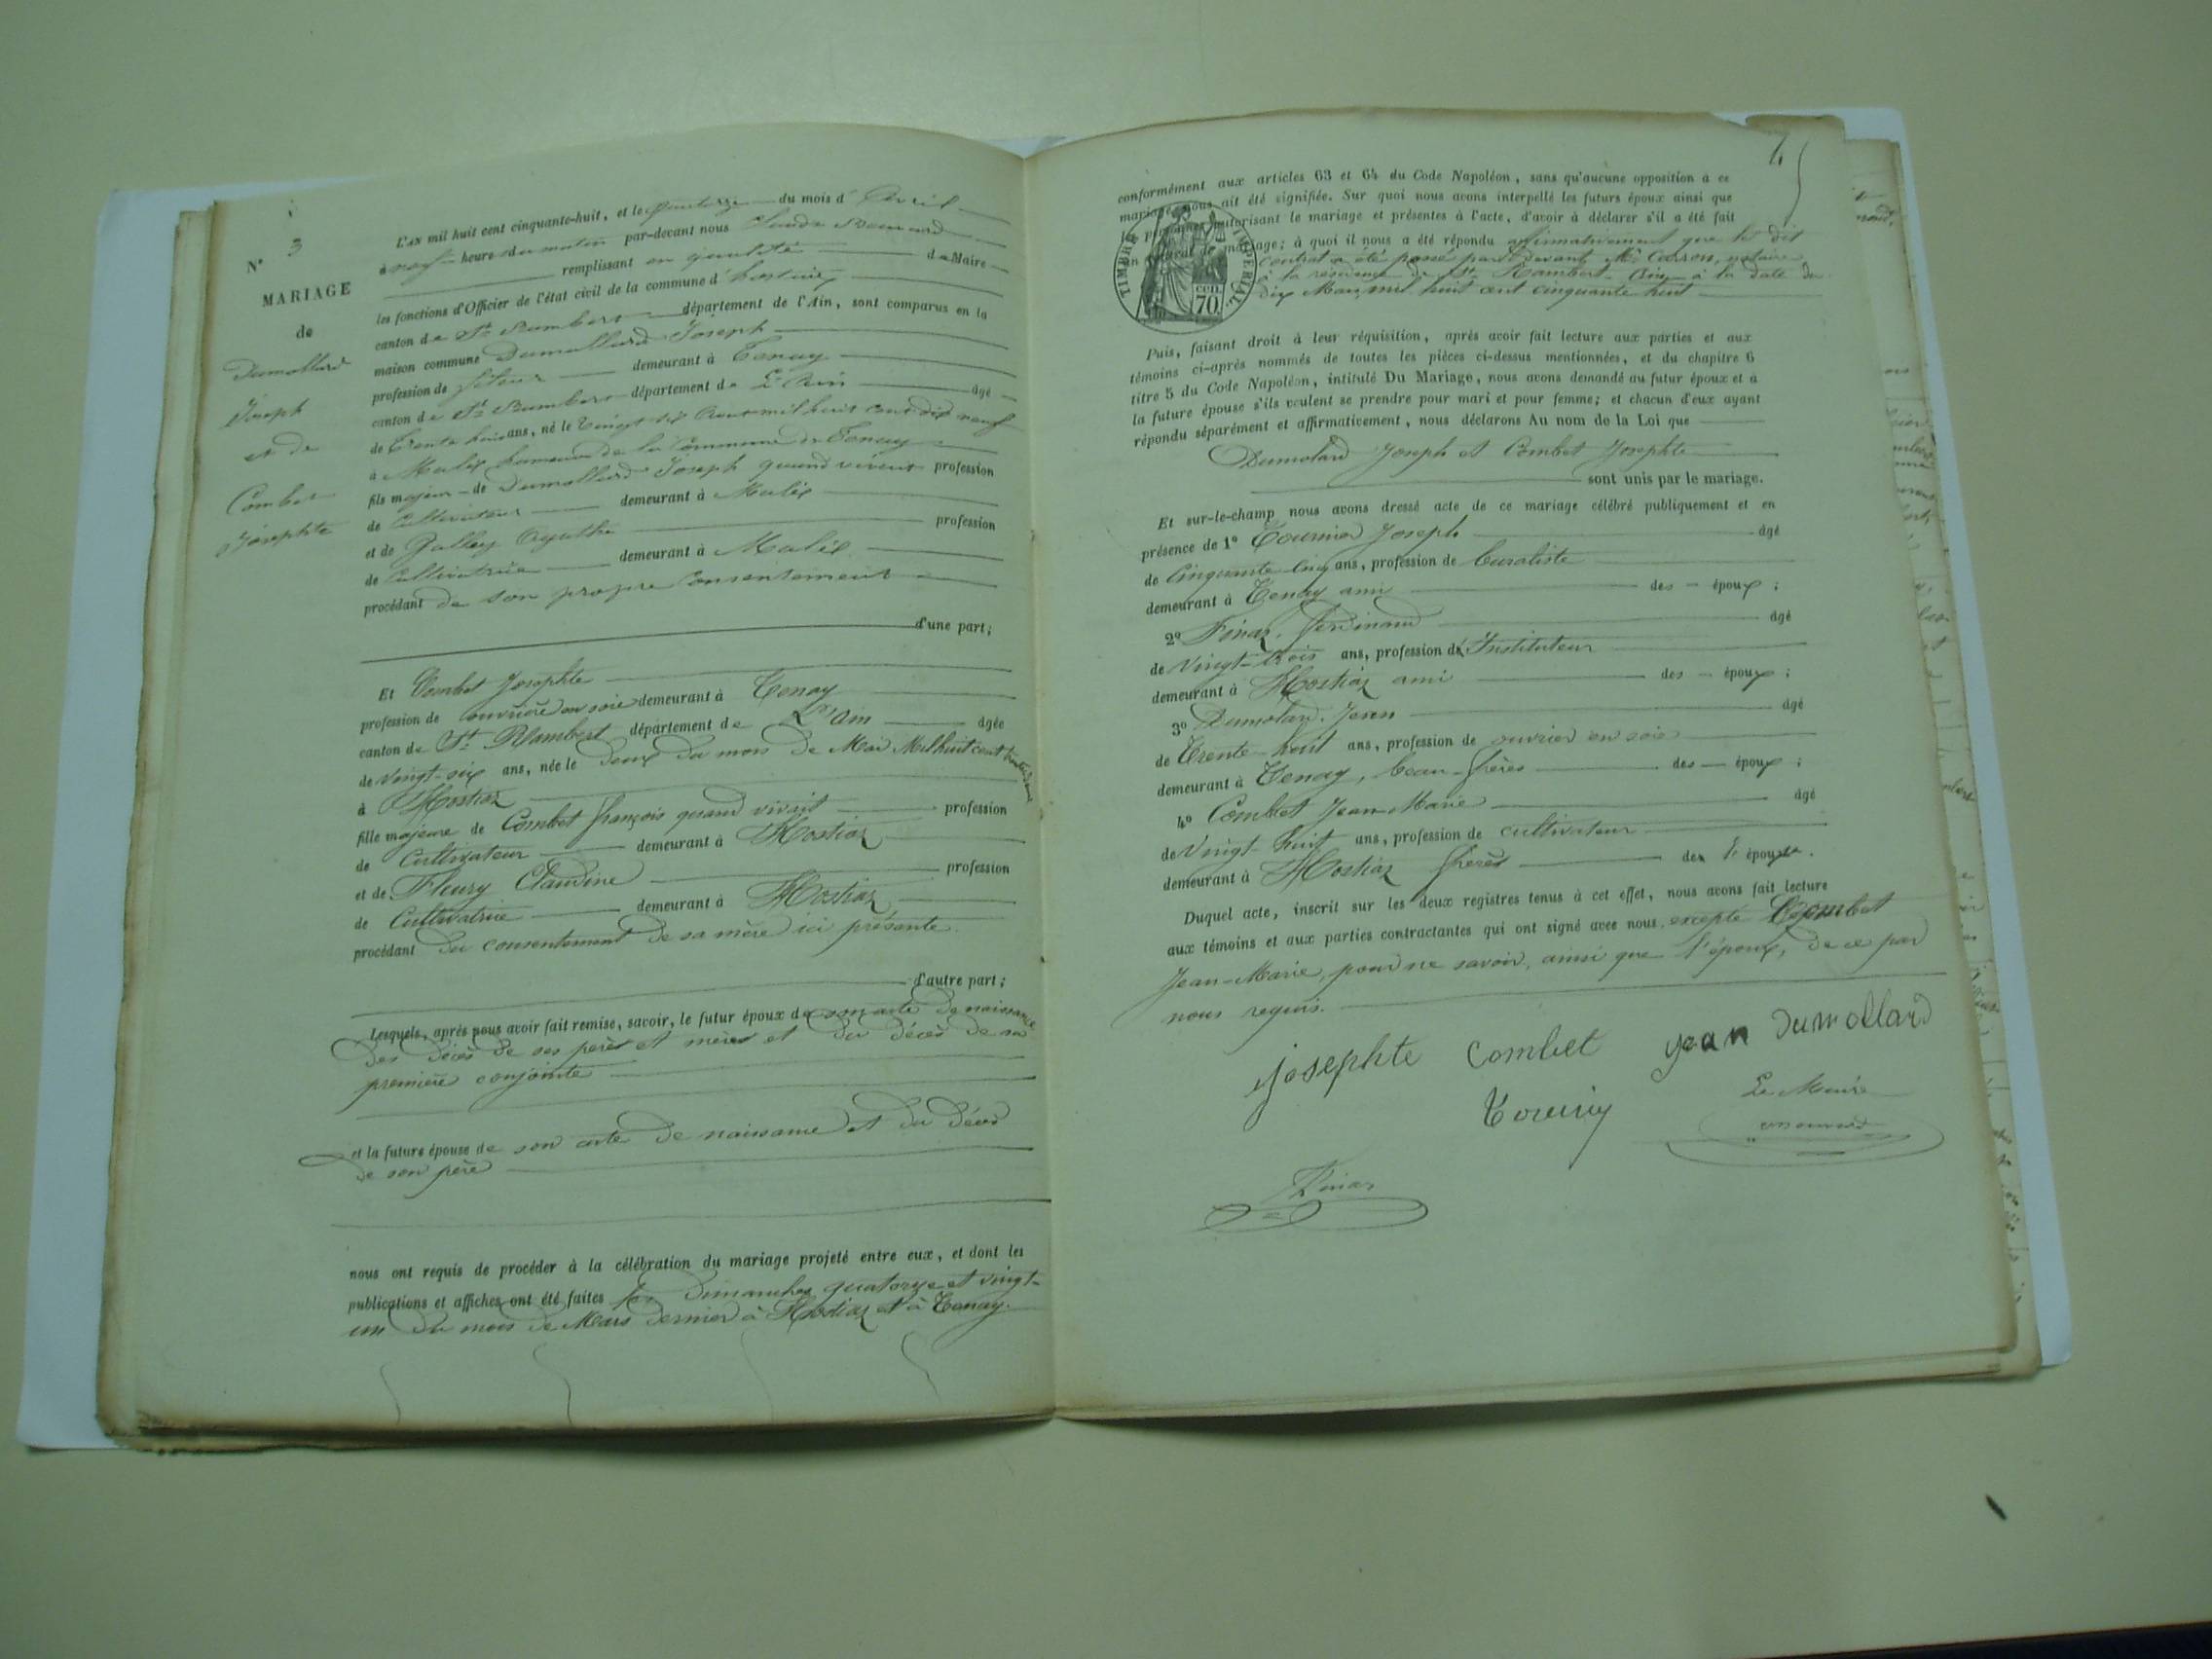 N° 3
MARIAGE
de
Dumollard
Joseph
et de
Combet
Josephte
L'AN mil huit cent cinquante-huit, et le quatorze du mois d'Avril
à neuf heures du matin par-devant nous Claude
remplissant en qualité de Maire
les fonctions d'Officier de l'état civil de la commune d'hostiaz
canton de St Rambert département de l'Ain, sont comparus en la
maison commune Dumollard Joseph
profession de demeurant à Tenay
canton de St Rambert département de L'Ain âgé
de trente huit ans, né le vingt mil huit cent dix neuf
à Malix hameau de la Commune de Tenay
fils majeur de Dumollard Joseph quand vivait profession
de Cultivateur demeurant à Malix
et de Galley Agathe profession
de Cultivatrice demeurant à Malix
procédant de son propre Consentement
d'une part;
Et Combet Josephte
profession de ouvrière en soie demeurant à Tenay
canton de St Rambert département de L'Ain âgée
de vingt-six ans, née le deux du mois de Mai Mil huit cent trente deux
à Hostiaz
fille majeure de Combet françois quand vivait profession
de Cultivateur demeurant à Hostiaz
et de Fleury Claudine profession
de Cultivatrice demeurant à Hostiaz
procédant du consentement de sa mère ici présente.
d'autre part;
Lesquels, après nous avoir fait remise, savoir, le futur époux de son acte de naissance
des décès de ses père et mère et du décès de sa
première conjointe
et la future épouse de son acte de naissance et du décès
de son père
nous ont requis de procéder à la célébration du mariage projeté entre eux, et dont les
publications et affiches ont été faites les dimanches quatorze et vingt-
un du mois de Mars dernier à Hostiaz et à Tenay.
conformément aux articles 63 et 64 du Code Napoléon, sans qu'aucune opposition à ce
mariage nous ait été signifiée. Sur quoi nous avons interpellé les futurs époux ainsi que
autorisant le mariage et présentes à l'acte, d'avoir à déclarer s'il a été fait
mariage; à quoi il nous a été répondu affirmativement que le dit
contrat a été passé par devant Me Carron, notaire
à la résidence de St Rambert Ain à la date du
dix Mars mil huit cent cinquante huit
TIMBRE IMPERIAL
CEN. 70
Puis, faisant droit à leur réquisition, après avoir fait lecture aux parties et aux
témoins ci-après nommés de toutes les pièces ci-dessus mentionnées, et du chapitre 6
titre 5 du Code Napoléon, intitulé Du Mariage, nous avons demandé au futur époux et à
la future épouse s'ils veulent se prendre pour mari et pour femme; et chacun d'eux ayant
répondu séparément et affirmativement, nous déclarons Au nom de la Loi que
Dumolard Joseph et Combet Josephte
sont unis par le mariage.
Et sur-le-champ nous avons dressé acte de ce mariage célébré publiquement et en
présence de 1° Tournier Joseph âgé
de Cinquante Cinq ans, profession de buraliste
demeurant à Tenay ami des époux;
2° Finaz, ferdinand âgé
de vingt-trois ans, profession d'Instituteur
demeurant à Hostiaz ami des époux;
3° Dumolard Jean âgé
de Trente huit ans, profession de ouvrier en soie
demeurant à Tenay, beau-frère des époux;
4° Combet Jean-Marie âgé
de Vingt huit ans, profession de cultivateur
demeurant à Hostiaz frère de l'épouse.
Duquel acte, inscrit sur les deux registres tenus à cet effet, nous avons fait lecture
aux témoins et aux parties contractantes qui ont signé avec nous, excepté Combet
Jean-Marie, pour ne savoir, ainsi que l'époux, de ce par
nous requis.
josephte combet jean dumollard
Le Maire
Finaz